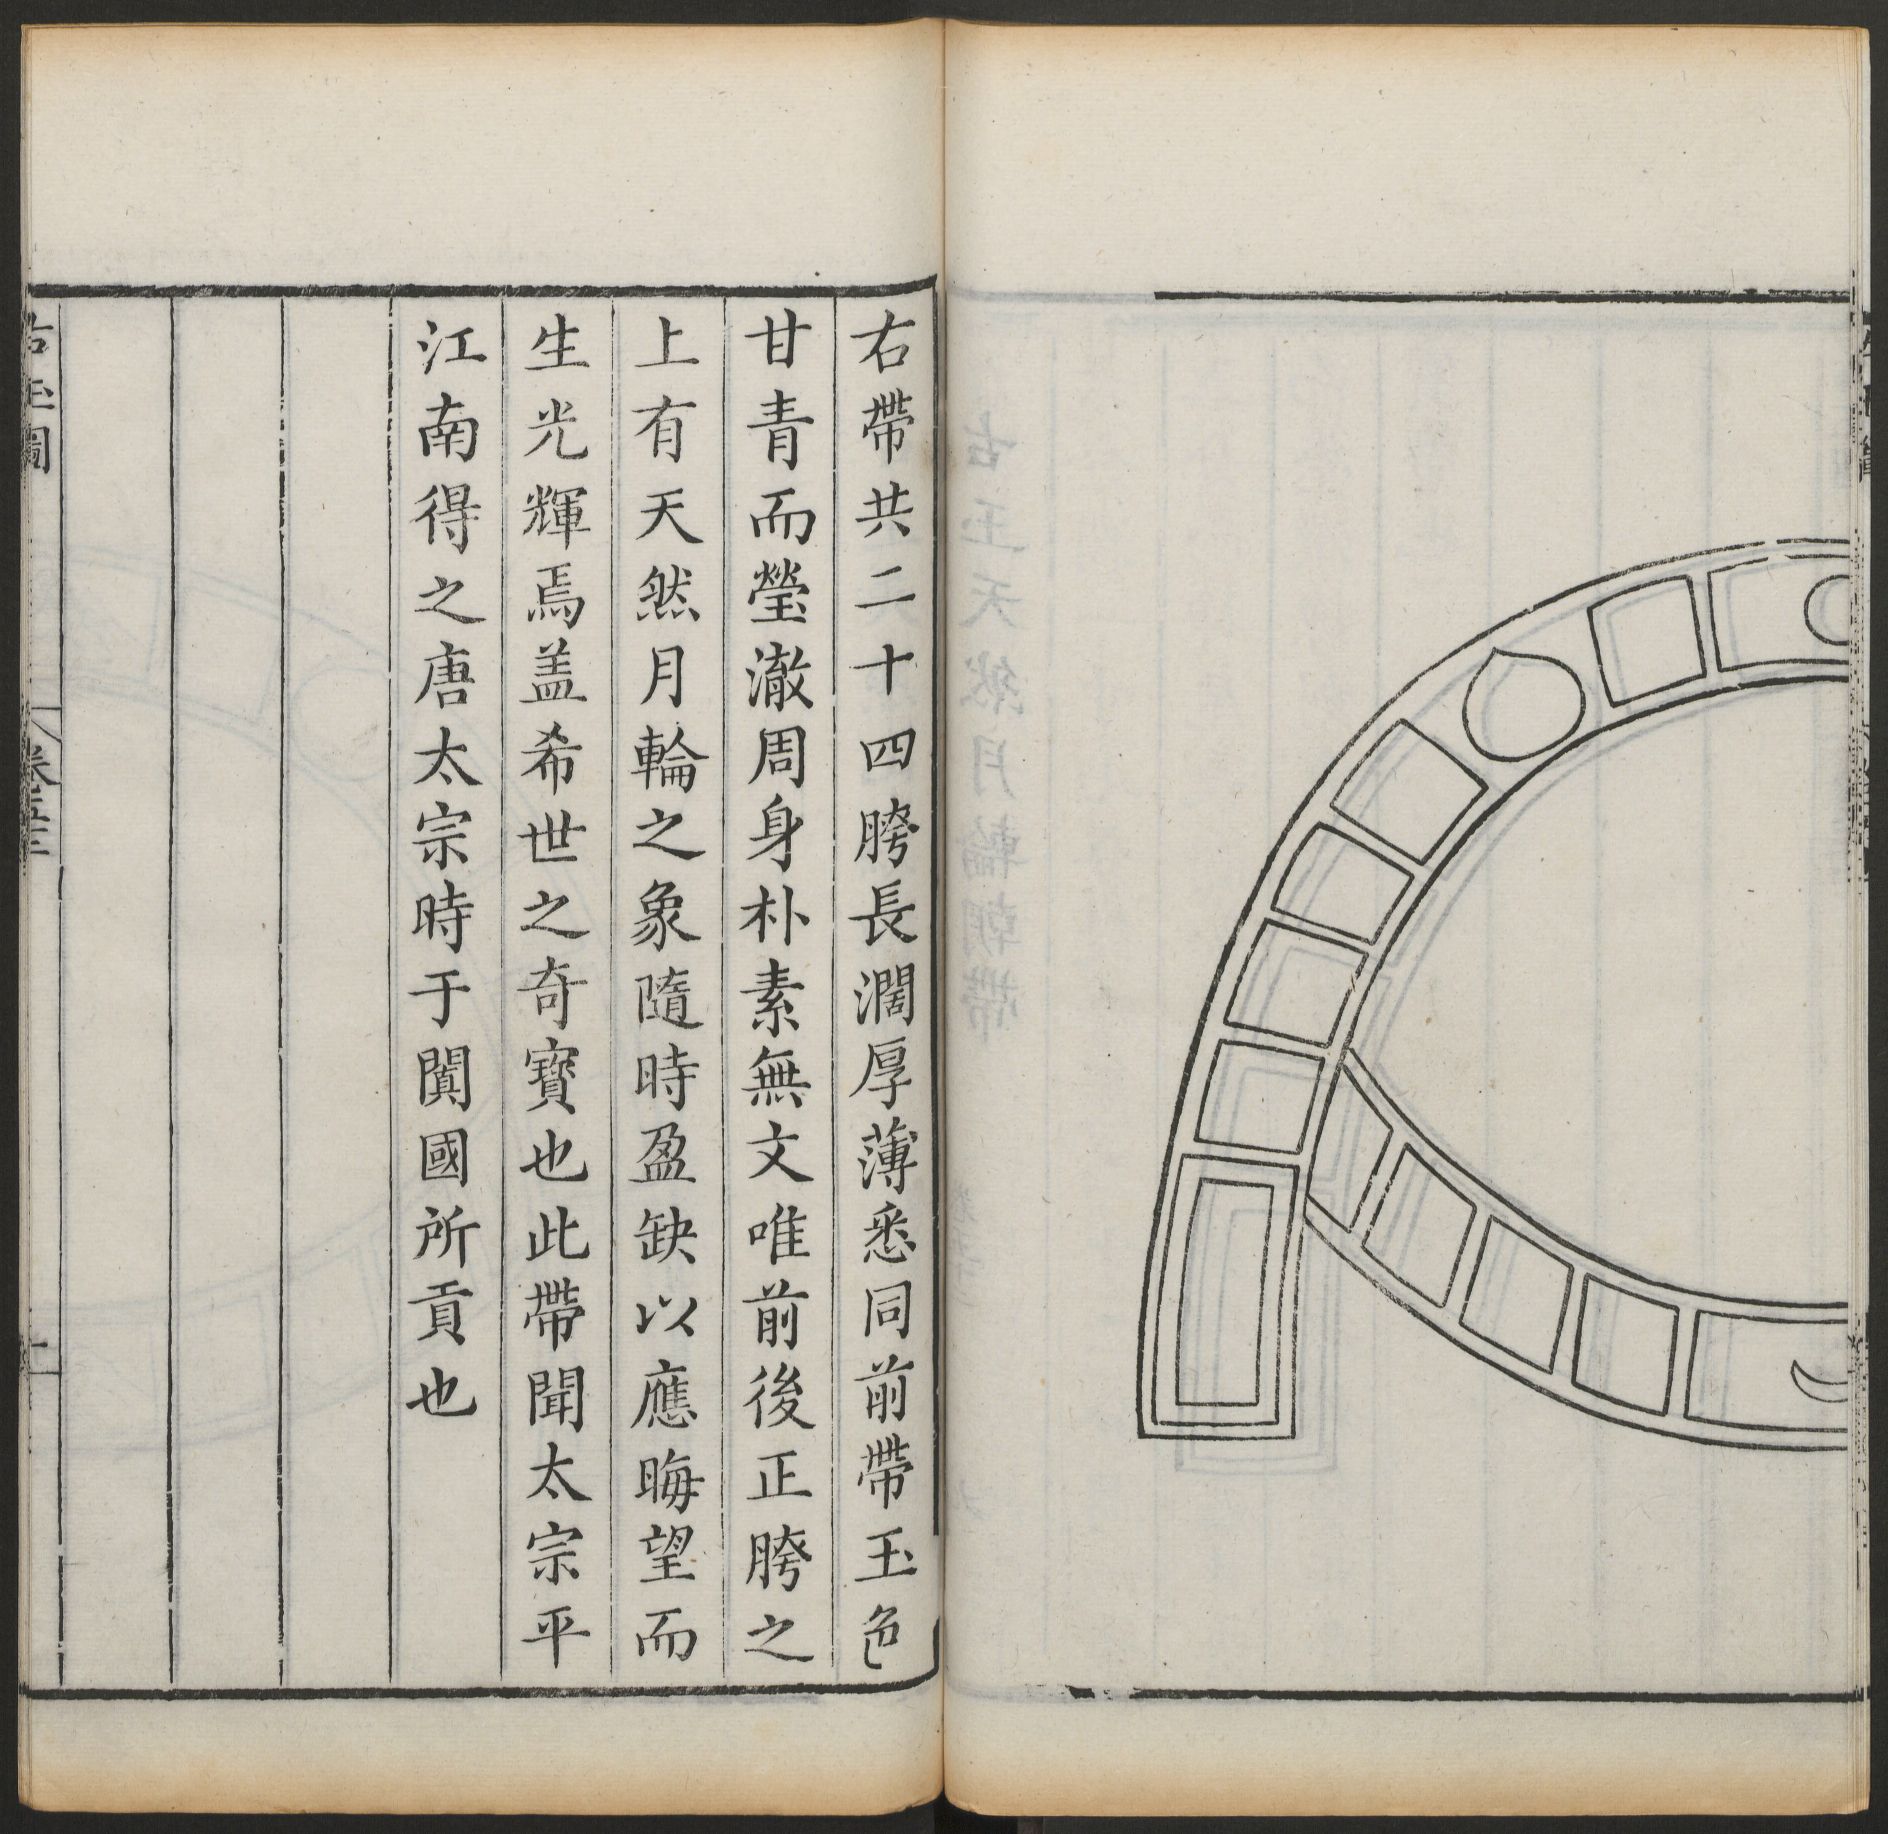 右帶共二十四胯長濶厚薄悉同前帶玉色
甘青而瑩澈周身朴素無文唯前後正胯之
上有天然月輪之象隨時盈缺以應晦望而
生光輝焉盖希世之奇寶也此帶聞太宗平
江南得之唐太宗時于闐國所貢也
古玉圖